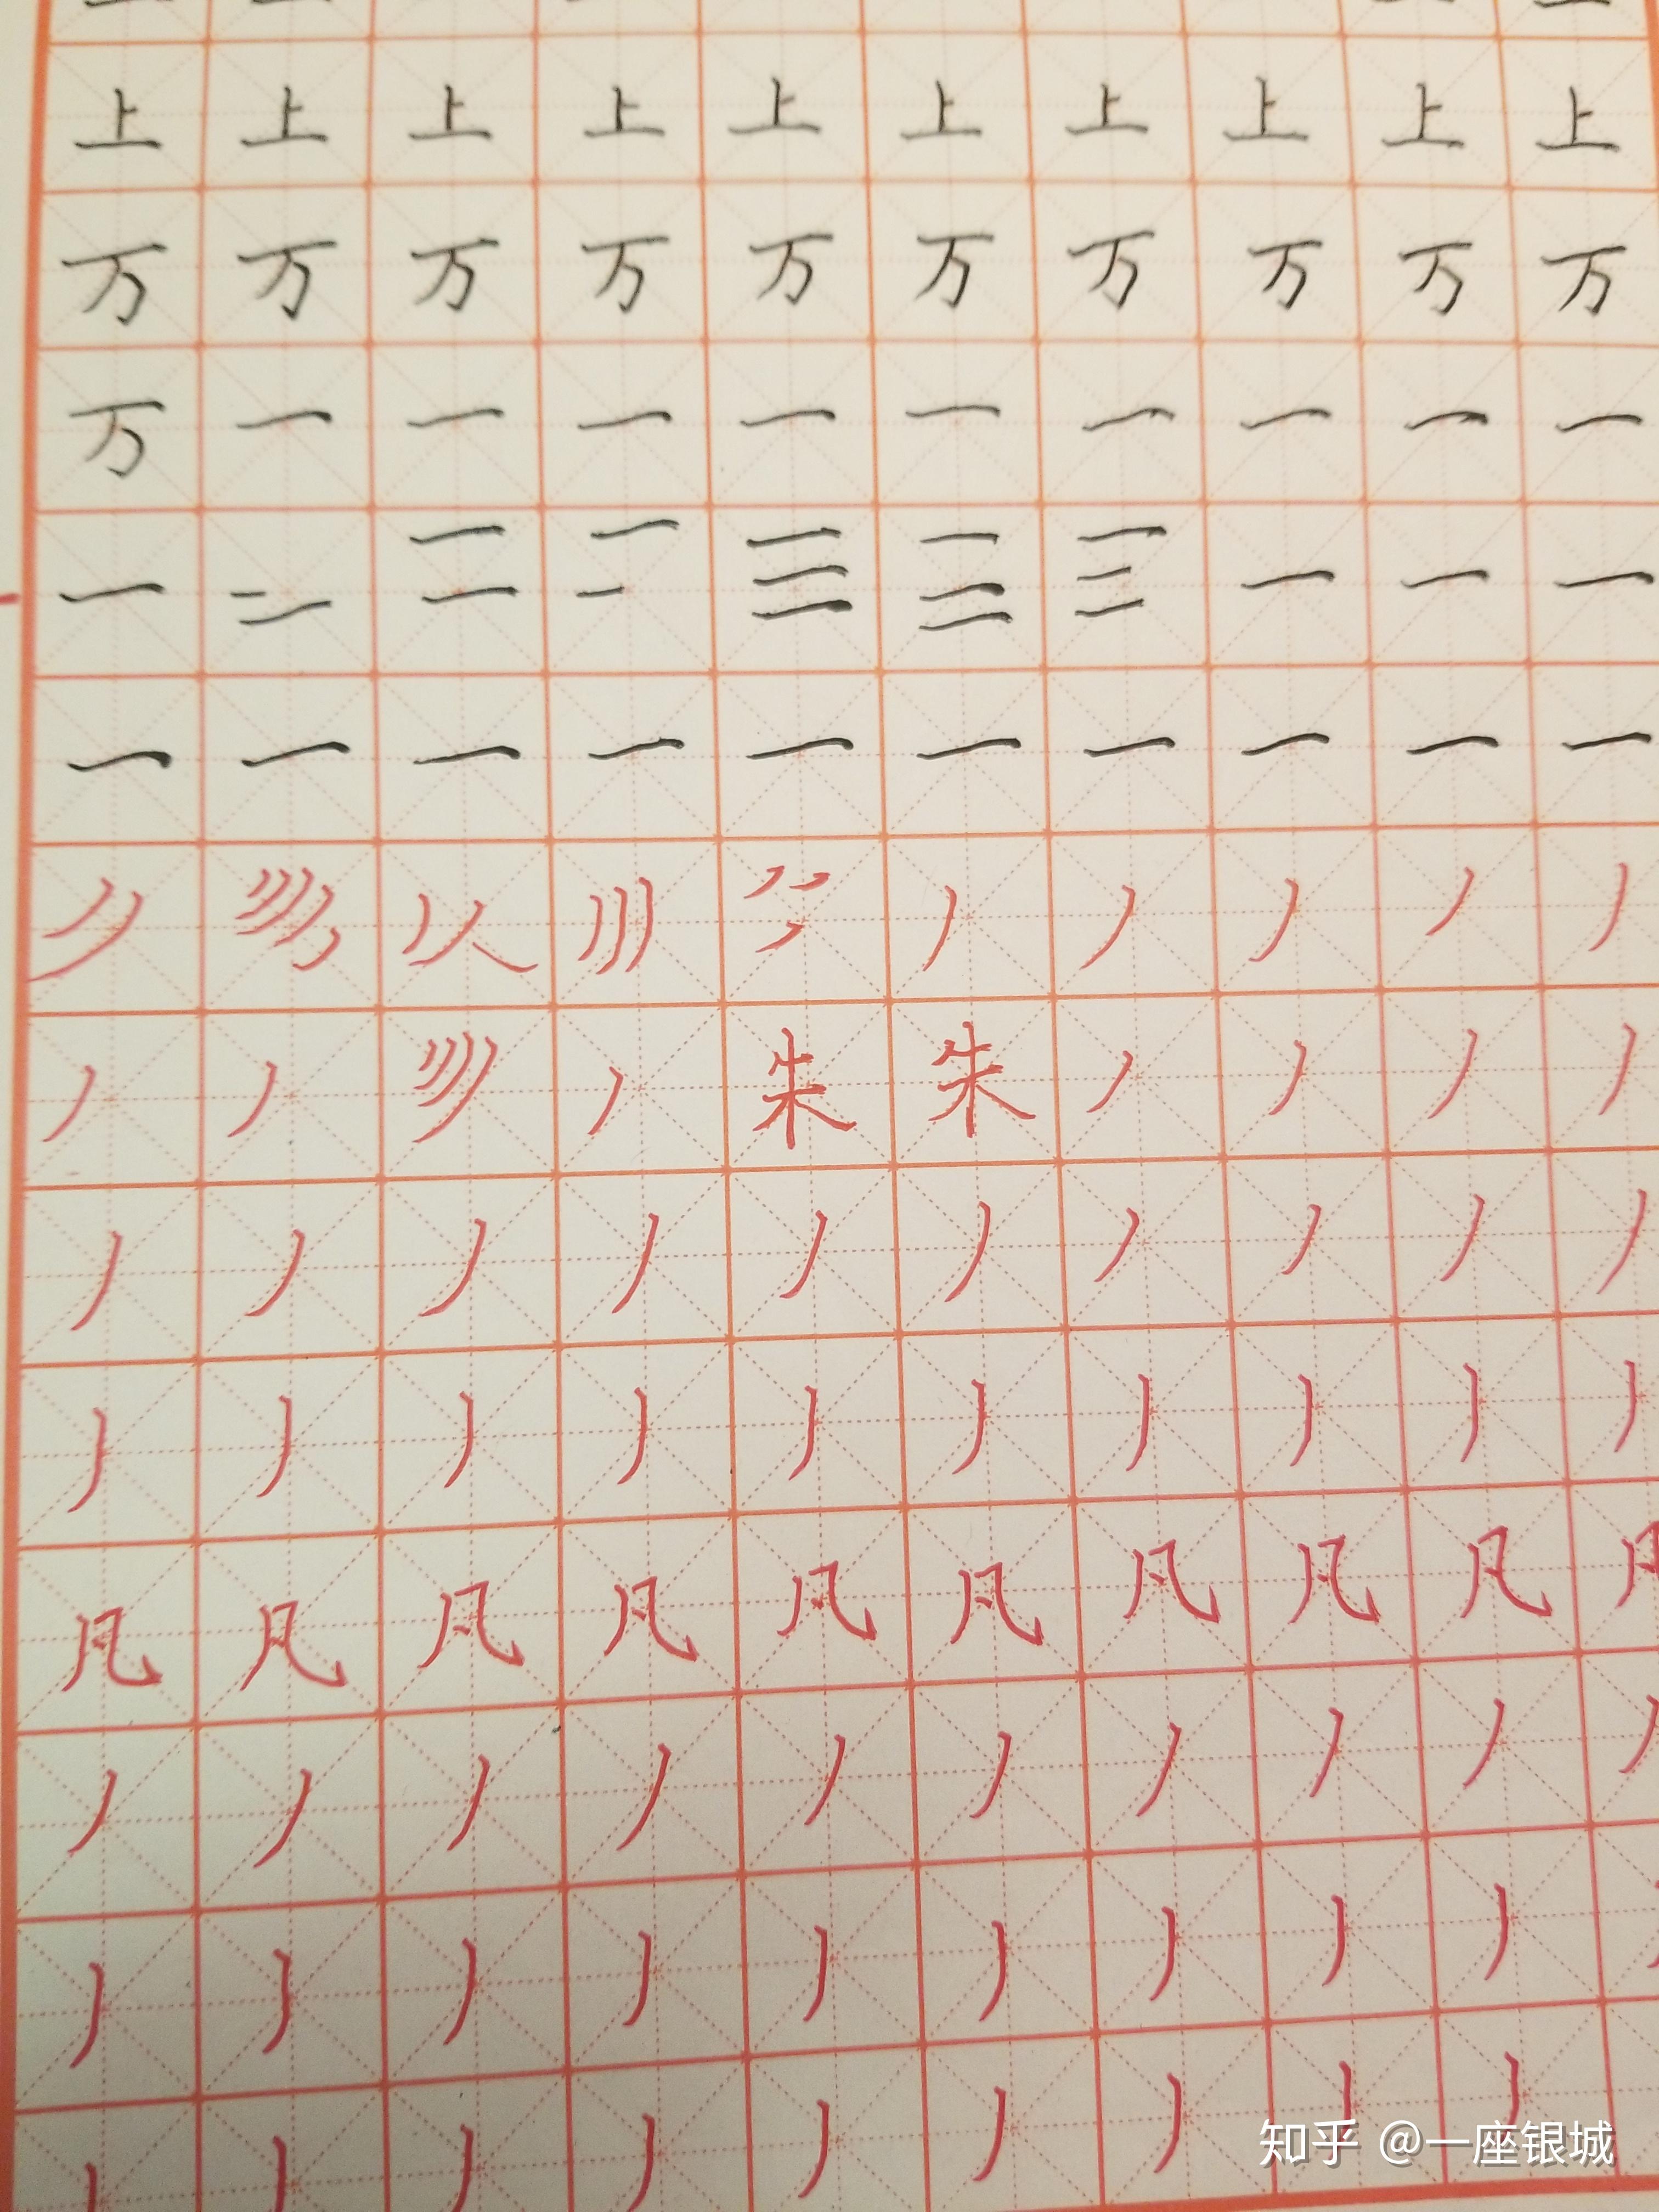 上 上 上 上 上 上 上 上 上 上
万 万 万 万 万 万 万 万 万 万
万 一 一 一 一 一 一 一 一 一
一 二 二 二 三 三 三 一 一 一
一 一 一 一 一 一 一 一 一 一
丿 丿 丿 丿 丿
丿 丿 丿 朱 朱 丿 丿 丿 丿
丿 丿 丿 丿 丿 丿 丿 丿 丿 丿
丿 丿 丿 丿 丿 丿 丿 丿 丿 丿
凡 凡 凡 凡 凡 凡 凡 凡 凡
丿 丿 丿 丿 丿 丿 丿 丿 丿 丿
丿 丿 丿 丿 丿 丿 丿 丿 丿
丿 丿 丿 丿 丿 丿 丿 丿 丿
知乎 @一座银城